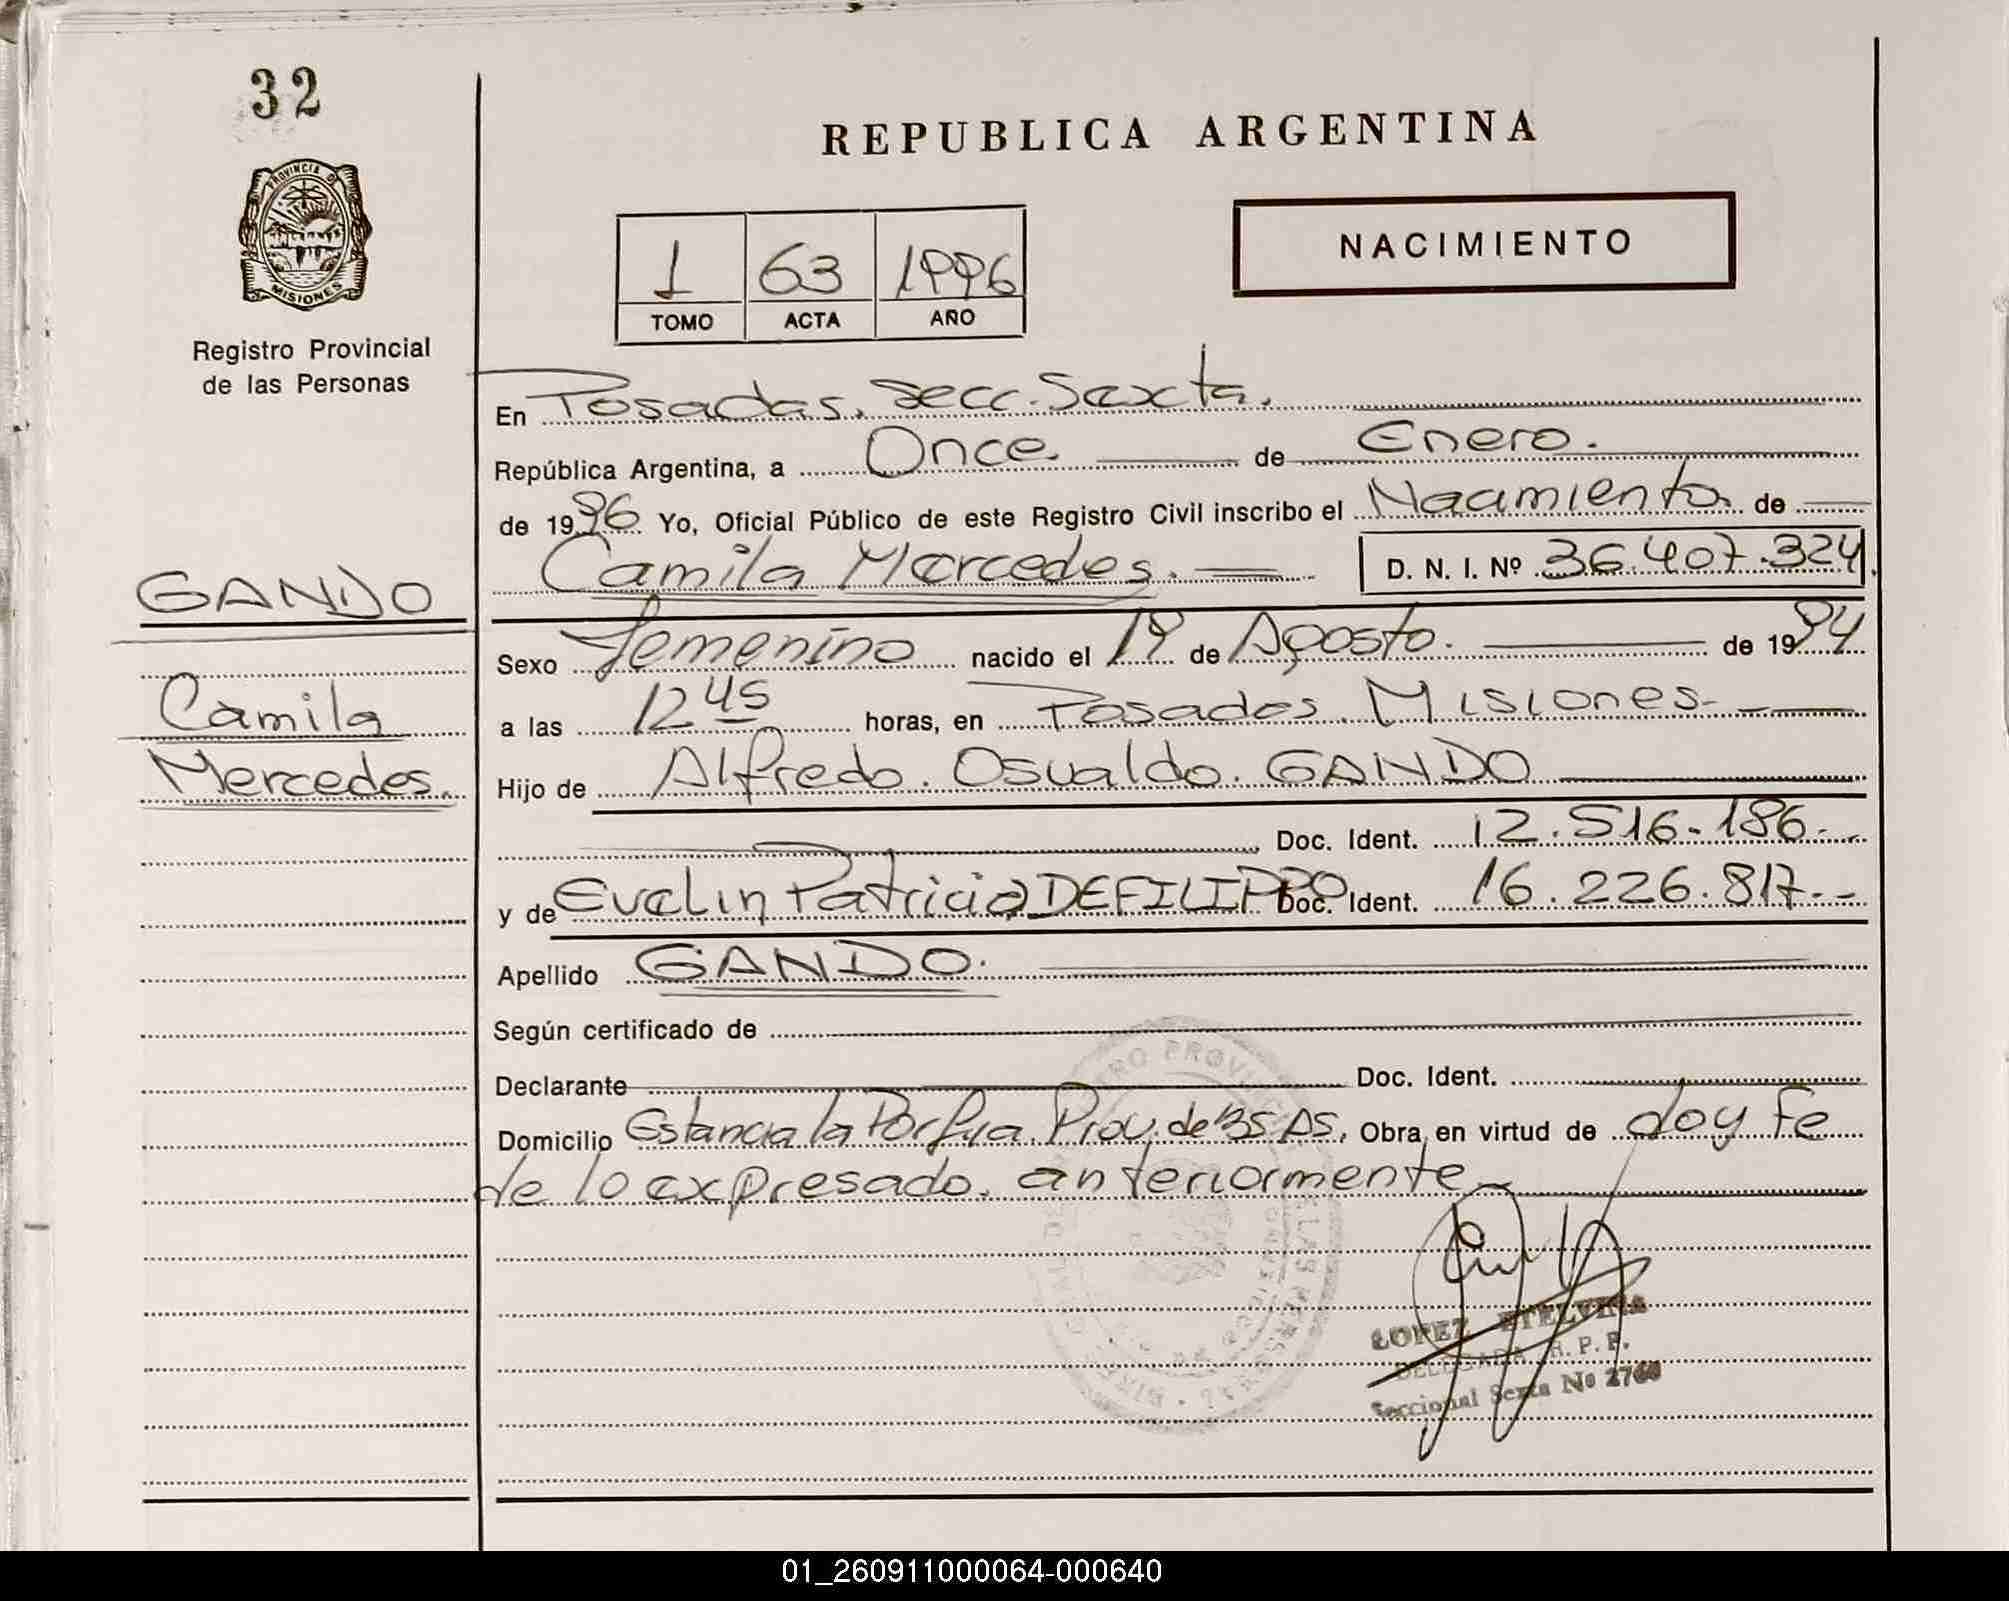 32
PROVINCIA D
MISIONES
Registro Provincial
de las Personas
REPUBLICA ARGENTINA
NACIMIENTO
1 63 1996
TOMO ACTA AÑO
En Posadas, Secc. Sexta.
República Argentina, a Once de Enero.
de 1996 Yo, Oficial Público de este Registro Civil inscribo el Nacimiento de
Camila Mercedes. D. N. I. Nº 36.407.324
GANDO
Camila
Mercedes.
Sexo Femenino nacido el 19 de Agosto. de 1994
a las 12 45 horas, en Posadas Misiones-
Hijo de Alfredo Osvaldo GANDO
Doc. Ident. 12.516.186.
y de Evelin Patricia DEFILIPPO Doc. Ident. 16.226.817.-
Apellido GANDO.
Según certificado de
Declarante Doc. Ident.
Domicilio Estancia la Porfiria Prov. de Bs As, Obra en virtud de doy fe
de lo expresado anteriormente
LOPEZ ETELVINA
DELEGADA R. P. P.
Seccional Sexta Nº
01_260911000064-000640